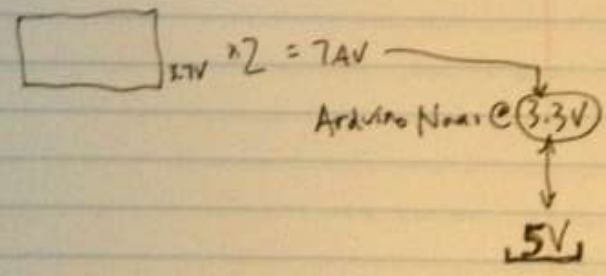 3.7V x2 = 7.4V
Arduino Nano @ 3.3V
5V